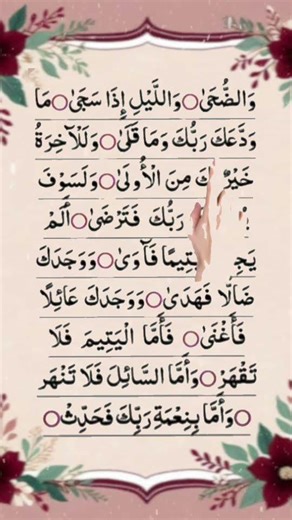 وَالضُّحَىٰ ○ وَاللَّيْلِ إِذَا سَجَىٰ ○ مَا
وَدَّعَكَ رَبُّكَ وَمَا قَلَىٰ ○ وَلَلْآخِرَةُ
مِنَ الْأُولَىٰ ○ وَلَسَوْفَ
رَبُّكَ فَتَرْضَىٰ ○ أَلَمْ
فَآوَىٰ ○ وَوَجَدَكَ
ضَالًّا فَهَدَىٰ ○ وَوَجَدَكَ عَائِلًا
فَأَغْنَىٰ ○ فَأَمَّا الْيَتِيمَ فَلَا
تَقْهَرْ ○ وَأَمَّا السَّائِلَ فَلَا تَنْهَر
○ وَأَمَّا بِنِعْمَةِ رَبِّكَ فَحَدِّثْ ○